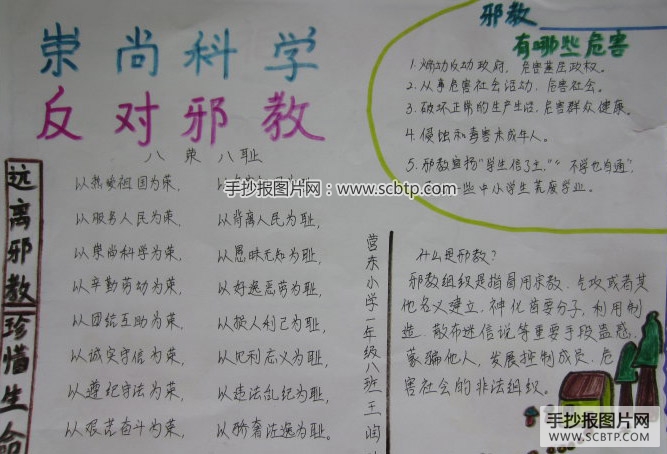 崇尚科学
反对邪教
八荣八耻
以热爱祖国为荣，
以服务人民为荣， 以背离人民为耻，
以崇尚科学为荣， 以愚昧无知为耻，
以辛勤劳动为荣， 以好逸恶劳为耻，
以团结互助为荣， 以损人利己为耻，
以诚实守信为荣， 以见利忘义为耻，
以遵纪守法为荣， 以违法乱纪为耻，
以艰苦奋斗为荣， 以骄奢淫逸为耻。
远离邪教 珍惜生命
邪教
有哪些危害
1. 煽动反动政府，危害基层政权。
2. 从事危害社会活动，危害社会。
3. 破坏正常的生产生活，危害群众健康。
4. 侵蚀和毒害未成年人。
5. 邪教宣扬"学生信了主""不学也自通"，
一些中小学生荒废学业。
营东小学一年级八班王润
什么是邪教？
邪教组织是指冒用宗教、气功或者其
他名义建立、神化首要分子，利用制
造、散布迷信说等重要手段蛊惑，
蒙骗他人，发展控制成员、危
害社会的非法组织。
手抄报图片网：www.scbtp.com
手抄报图片网
WWW.SCBTP.COM